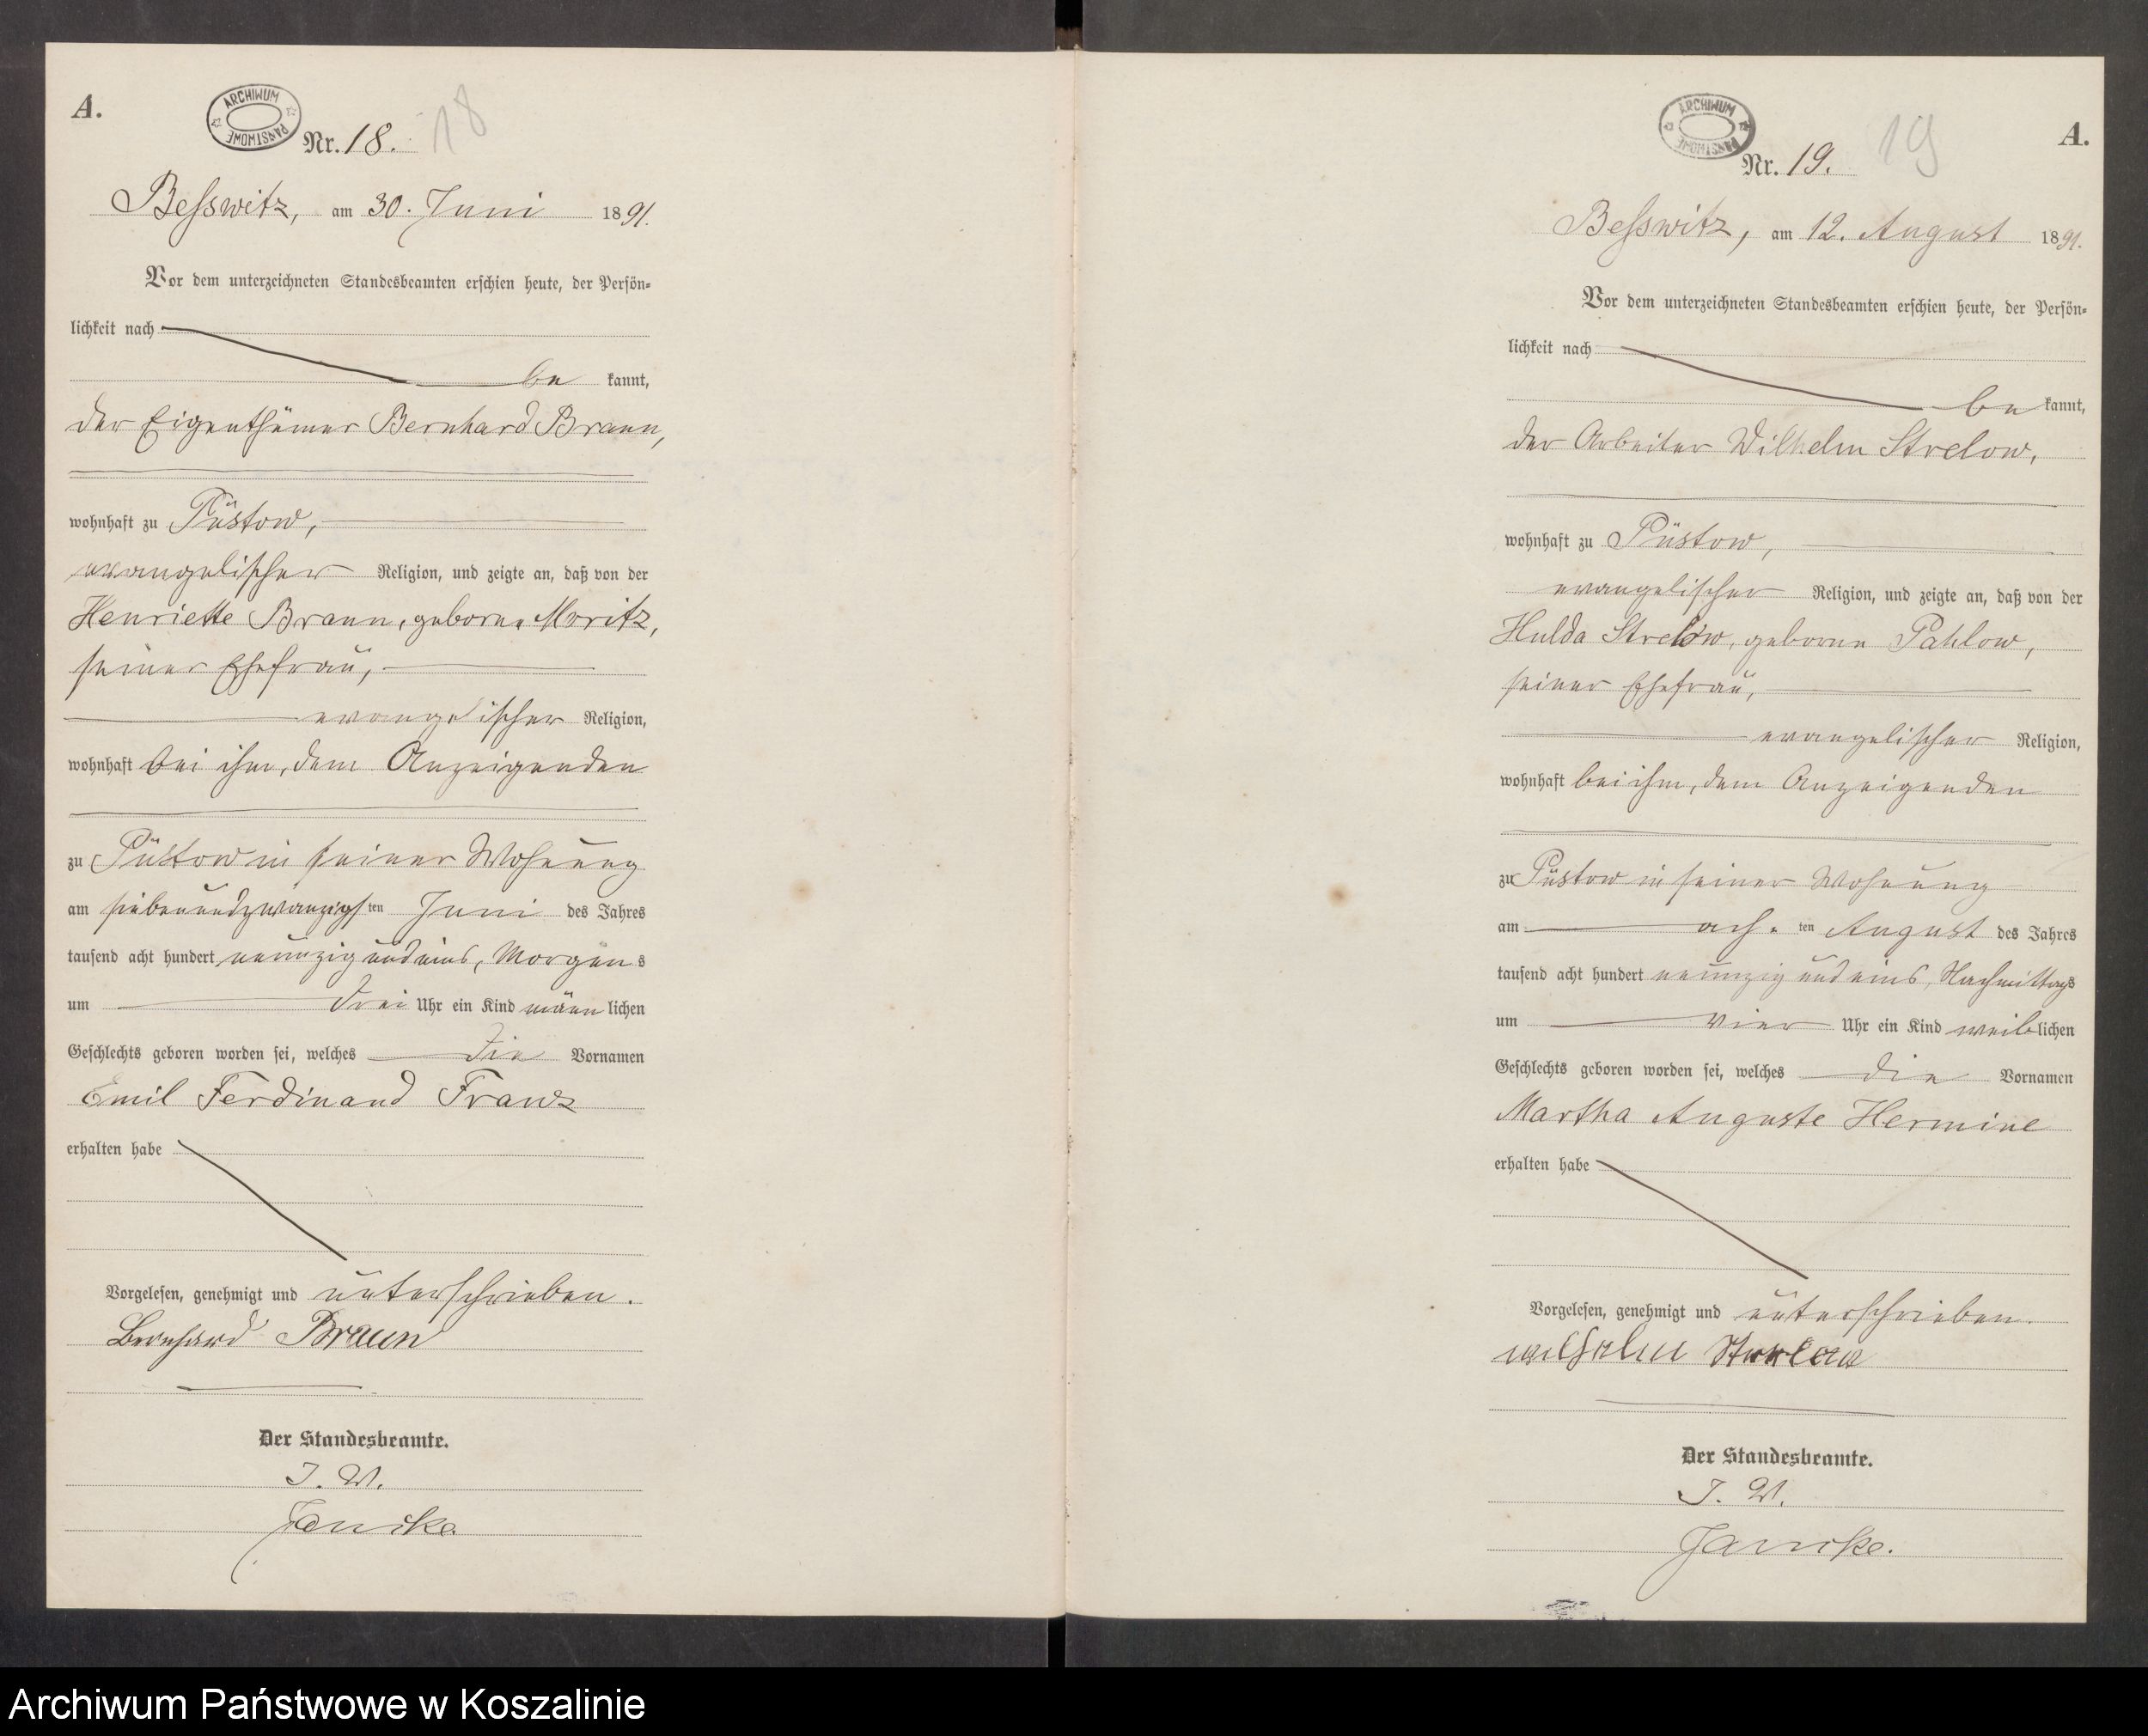 A.
ARCHIWUM PAŃSTWOWE
Nr. 18.
18
Besswitz, am 30. Juni 1891.
Vor dem unterzeichneten Standesbeamten erschien heute, der Persön-
lichkeit nach
be kannt,
der Eigenthümer Bernhard Braun,
wohnhaft zu Püstow,
evangelischer Religion, und zeigte an, daß von der
Henriette Braun, geborne Moritz,
seiner Ehefrau,
evangelischer Religion,
wohnhaft bei ihm, dem Anzeigenden
zu Püstow in seiner Wohnung
am siebenundzwanzigsten Juni des Jahres
tausend acht hundert neunzig und eins, Morgens
um drei Uhr ein Kind männlichen
Geschlechts geboren worden sei, welches die Vornamen
Emil Ferdinand Franz
erhalten habe
Vorgelesen, genehmigt und unterschrieben.
Bernhard Braun
Der Standesbeamte.
J. V.
Jancke
A.
ARCHIWUM PAŃSTWOWE
Nr. 19.
19
Besswitz, am 12. August 1891.
Vor dem unterzeichneten Standesbeamten erschien heute, der Persön-
lichkeit nach
be kannt,
der Arbeiter Wilhelm Strelow,
wohnhaft zu Püstow,
evangelischer Religion, und zeigte an, daß von der
Hulda Strelow, geborne Pahlow,
seiner Ehefrau,
evangelischer Religion,
wohnhaft bei ihm, dem Anzeigenden
zu Püstow in seiner Wohnung
am ach ten August des Jahres
tausend acht hundert neunzig und eins, Nachmittags
um vier Uhr ein Kind weiblichen
Geschlechts geboren worden sei, welches die Vornamen
Martha Auguste Hermine
erhalten habe
Vorgelesen, genehmigt und unterschrieben.
wilhelm Strelow
Der Standesbeamte.
J. V.
Jancke.
Archiwum Państwowe w Koszalinie